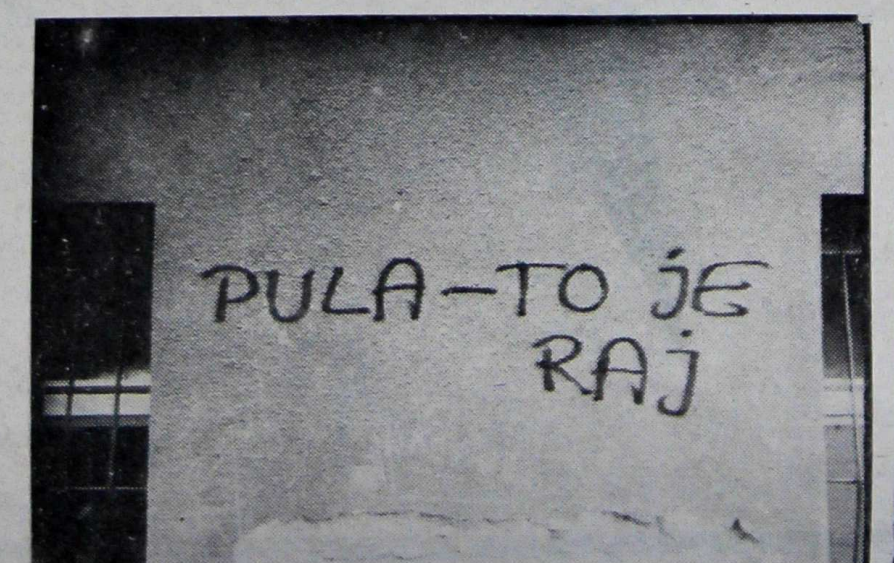 PULA-TO jE
RAj